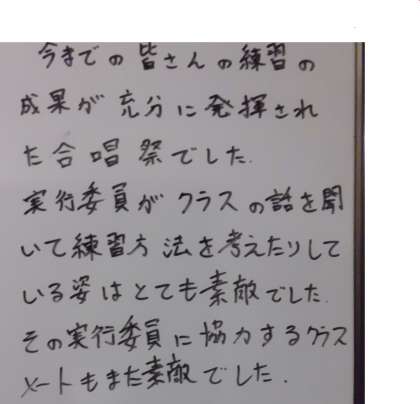 今までの皆さんの練習の
成果が充分に発揮され
た合唱祭でした.
実行委員がクラスの話を聞
いて練習方法を考えたりして
いる姿はとても素敵でした.
その実行委員に協力するクラス
メートもまた素敵でした.